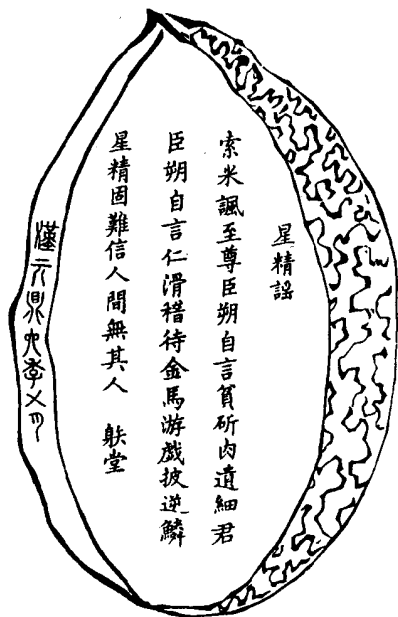 星精謡
索米諷至尊臣朔自言貧斫肉遺細君
臣朔自言仁滑稽待金馬游戲披逆鱗
星精固難信人間無其人 堂
漢元鼎六年五月